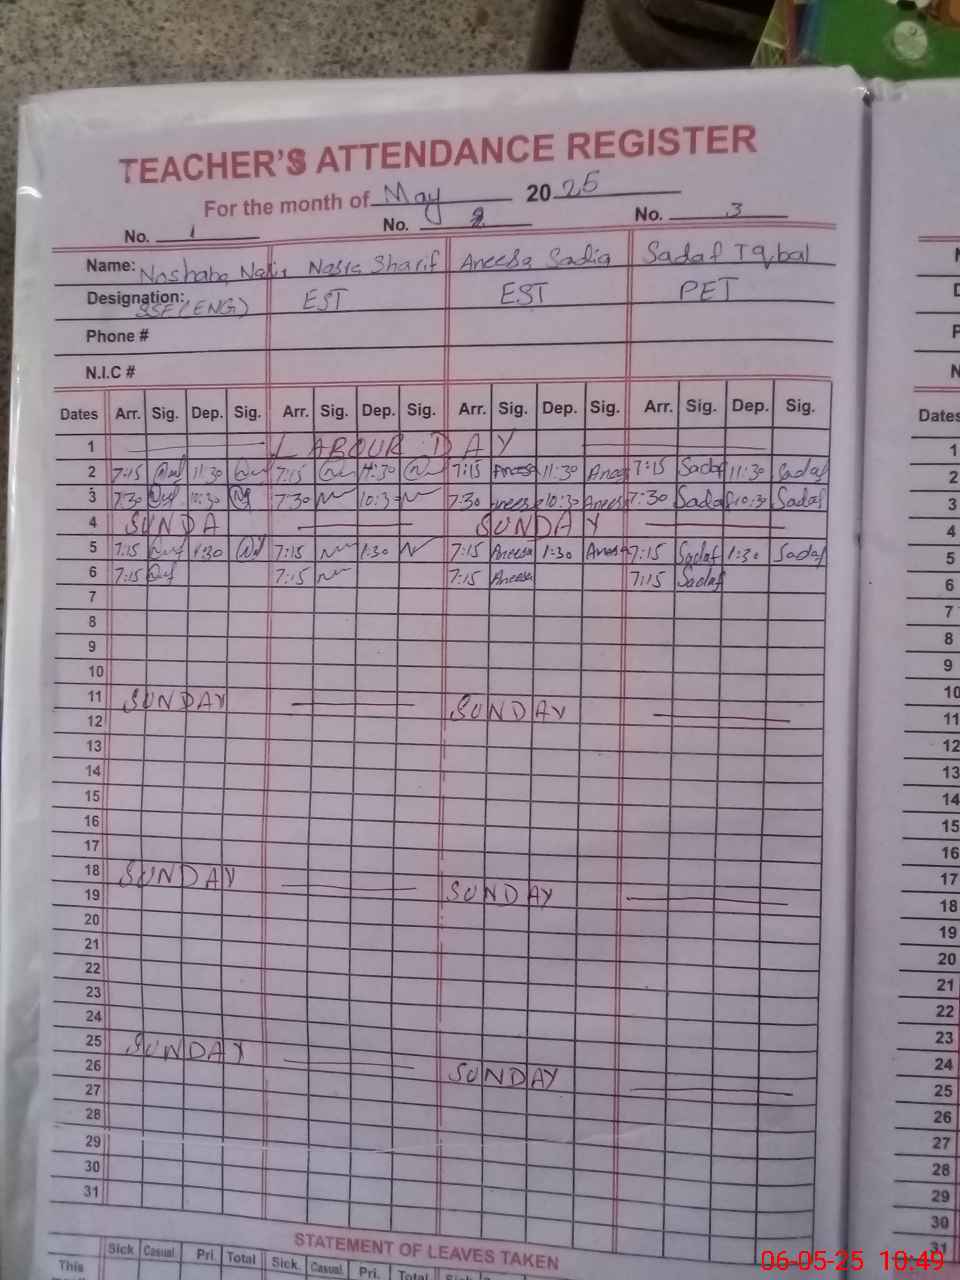 TEACHER'S ATTENDANCE REGISTER
For the month of May 2025
No. 1 No. 2 No. 3
Name: Noshaba Nasia Sharif Aneesa Sadia Sadaf Iqbal
Designation: SSE(ENG) EST EST PET
Phone #
N.I.C #
Dates Arr. Sig. Dep. Sig. Arr. Sig. Dep. Sig. Arr. Sig. Dep. Sig. Arr. Sig. Dep. Sig.
1 LABOUR DAY
2 7:15 11:30 7:15 11:30 7:15 Aneesa 11:30 Anees 7:15 Sadaf 11:30 Sadaf
3 7:30 10:30 7:30 10:30 7:30 Aneesa 10:30 Anees 7:30 Sadaf 10:30 Sadaf
4 SUNDA SUNDAY
5 7:15 1:30 7:15 1:30 7:15 Aneesa 1:30 Aneesa 7:15 Sadaf 1:30 Sadaf
6 7:15 7:15 7:15 Aneesa 7:15 Sadaf
7
8
9
10
11 SUNDAY SUNDAY
12
13
14
15
16
17
18 SUNDAY SUNDAY
19
20
21
22
23
24
25 SUNDAY SUNDAY
26
27
28
29
30
31
STATEMENT OF LEAVES TAKEN
Sick Casual Pri. Total Sick. Casual Pri. Total Sick
This
Dates
1
2
3
4
5
6
7
8
9
10
11
12
13
14
15
16
17
18
19
20
21
22
23
24
25
26
27
28
29
30
31
06-05-25 10:49